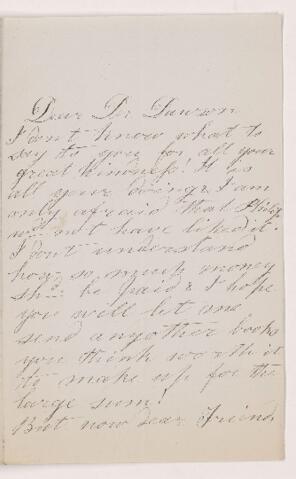 Dear Dr Dawson
I don't know what to
say to you for all your
great kindness! It is
all your doing & I am
only afraid that Philip
will not have liked it.
I don't understand
how so much money
sh.d be paid & I hope
you will let me
send any other books
you think worth it
to make up for the
large sum!
But now dear Friend,